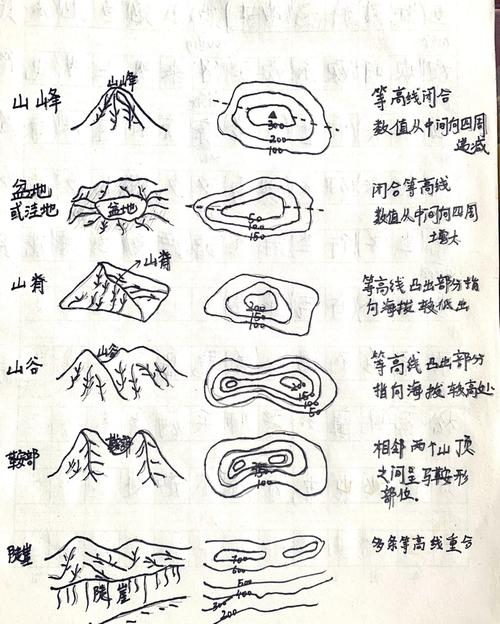 山峰
山峰
300
200
100
等高线闭合
数值从中间向四周
递减
盆地
或洼地
盆地
50
100
150
闭合等高线
数值从中间向四周
增大
山脊
山脊
200
150
100
等高线凸出部分指
向海拔较低出
山谷
山谷
200
150
100
50
等高线凸出部分
指向海拔较高处
鞍部
鞍部
100
相邻两个山顶
之间呈马鞍形
部位。
陡崖
陡崖
700
600
500
400
300
200
多条等高线重合